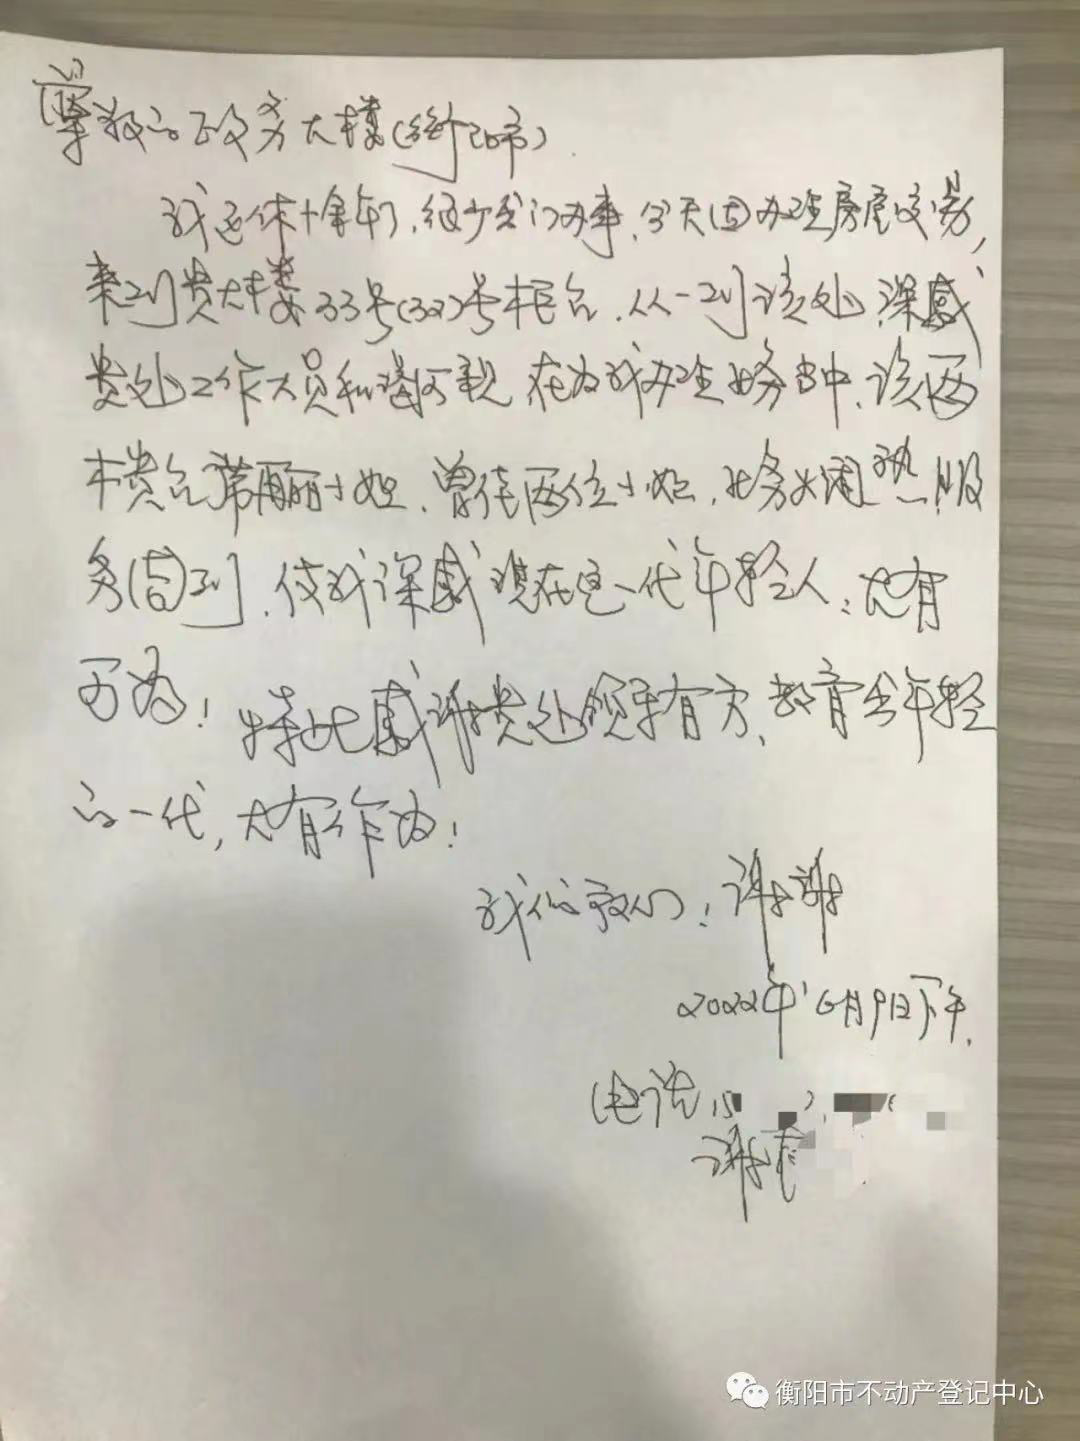 尊敬的政务大楼(衡阳市)
我退休十余年了,很少出门办事,今天(因)办理房屋交易,
来到贵大楼33号(32)号柜台,从一到该处,深感
贵处工作人员和蔼可亲,在为我办理业务当中,该两
柜台 丽小姐,曾佳两位小姐,业务娴熟,服
务(周)到,使我深感现在这一代年轻人:大有
可为!特此感谢贵处领导有方,教育出年轻
的一代,大有作为!
我们敬礼!谢谢
2022年6月9日下午.
(电话,15
谢
衡阳市不动产登记中心